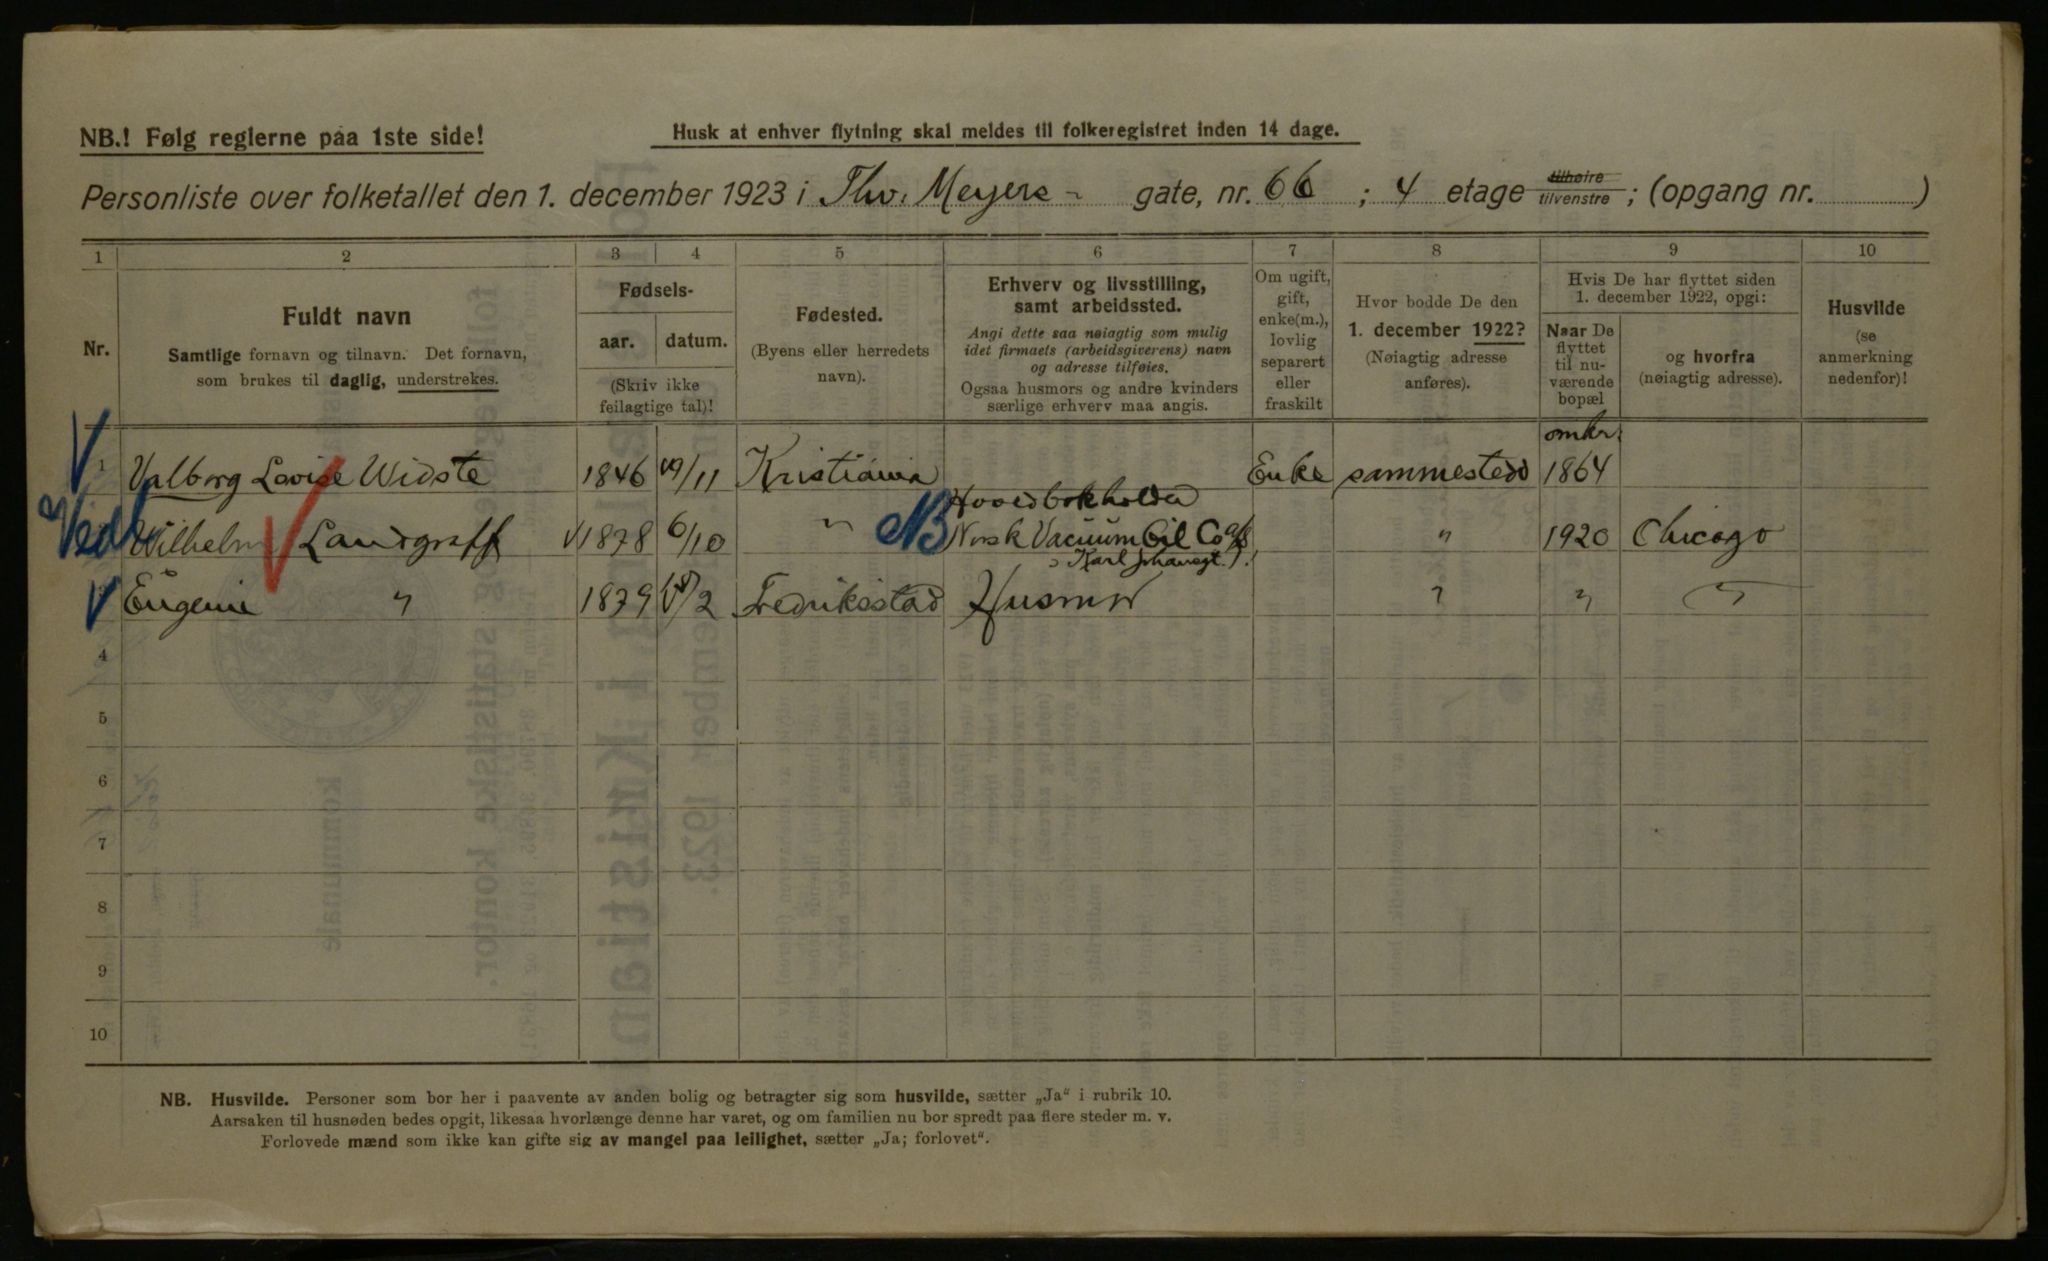 NB.! Følg reglerne paa 1ste side!
Husk at enhver flytning skal meldes til folkeregistret inden 14 dage.
Personliste over folketallet den 1. december 1923 i Thv. Meyers gate, nr. 66 ; 4 etage tilhøire tilvenstre ; (opgang nr. )
1 2 3 4 5 6 7 8 9 10
Nr.
Fuldt navn
Samtlige fornavn og tilnavn. Det fornavn,
som brukes til daglig, understrekes.
Fødsels-
aar. datum.
(Skriv ikke
feilagtige tal)!
Fødested.
(Byens eller herredets
navn).
Erhverv og livsstilling,
samt arbeidssted.
Angi dette saa nøiagtig som mulig
idet firmaets (arbeidsgiverens) navn
og adresse tilføies.
Ogsaa husmors og andre kvinders
særlige erhverv maa angis.
Om ugift,
gift,
enke(m.),
lovlig
separert
eller
fraskilt
Hvor bodde De den
1. december 1922?
(Nøiagtig adresse
anføres).
Hvis De har flyttet siden
1. december 1922, opgi:
Naar De
flyttet
til nu-
værende
bopæl
og hvorfra
(nøiagtig adresse).
Husvilde
(se
anmerkning
nedenfor)!
omkr.
1 Valborg Lovise Widste 1846 19/11 Kristiania Enke sammested 1864
Hovedbokholder
Wilhelm Landgraff 1878 6/10 " NB Norsk Vacuum Oil Co a/s " 1920 Chicago
Karl Johansgt.
Eugenie " 1879 /2 Fredriksstad Husmor " " "
4
5
6
7
8
9
10
NB. Husvilde. Personer som bor her i paavente av anden bolig og betragter sig som husvilde, sætter „Ja“ i rubrik 10.
Aarsaken til husnøden bedes opgit, likesaa hvorlænge denne har varet, og om familien nu bor spredt paa flere steder m. v.
Forlovede mænd som ikke kan gifte sig av mangel paa leilighet, sætter „Ja; forlovet“.